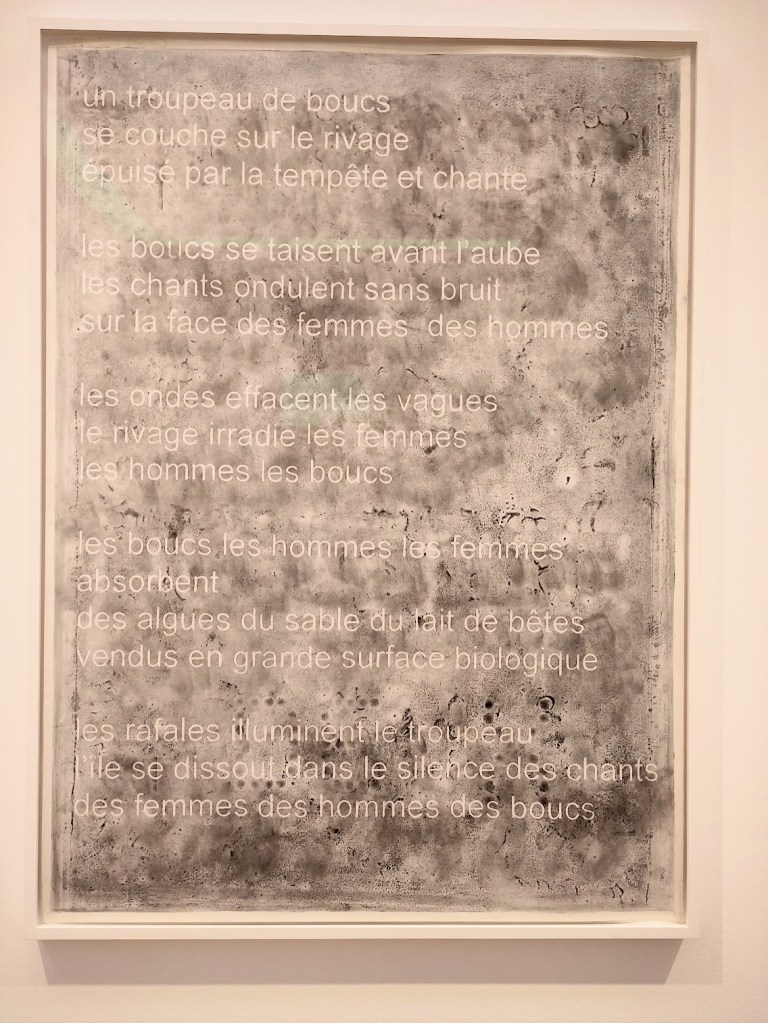 un troupeau de boucs
se couche sur le rivage
épuisé par la tempête et chante
les boucs se taisent avant l'aube
les chants ondulent sans bruit
sur la face des femmes des hommes
les ondes effacent les vagues
le rivage irradie les femmes
les hommes les boucs
les boucs les hommes les femmes
absorbent
des algues du sable du lait de bêtes
vendus en grande surface biologique
les rafales illuminent le troupeau
l'île se dissout dans le silence des chants
des femmes des hommes des boucs